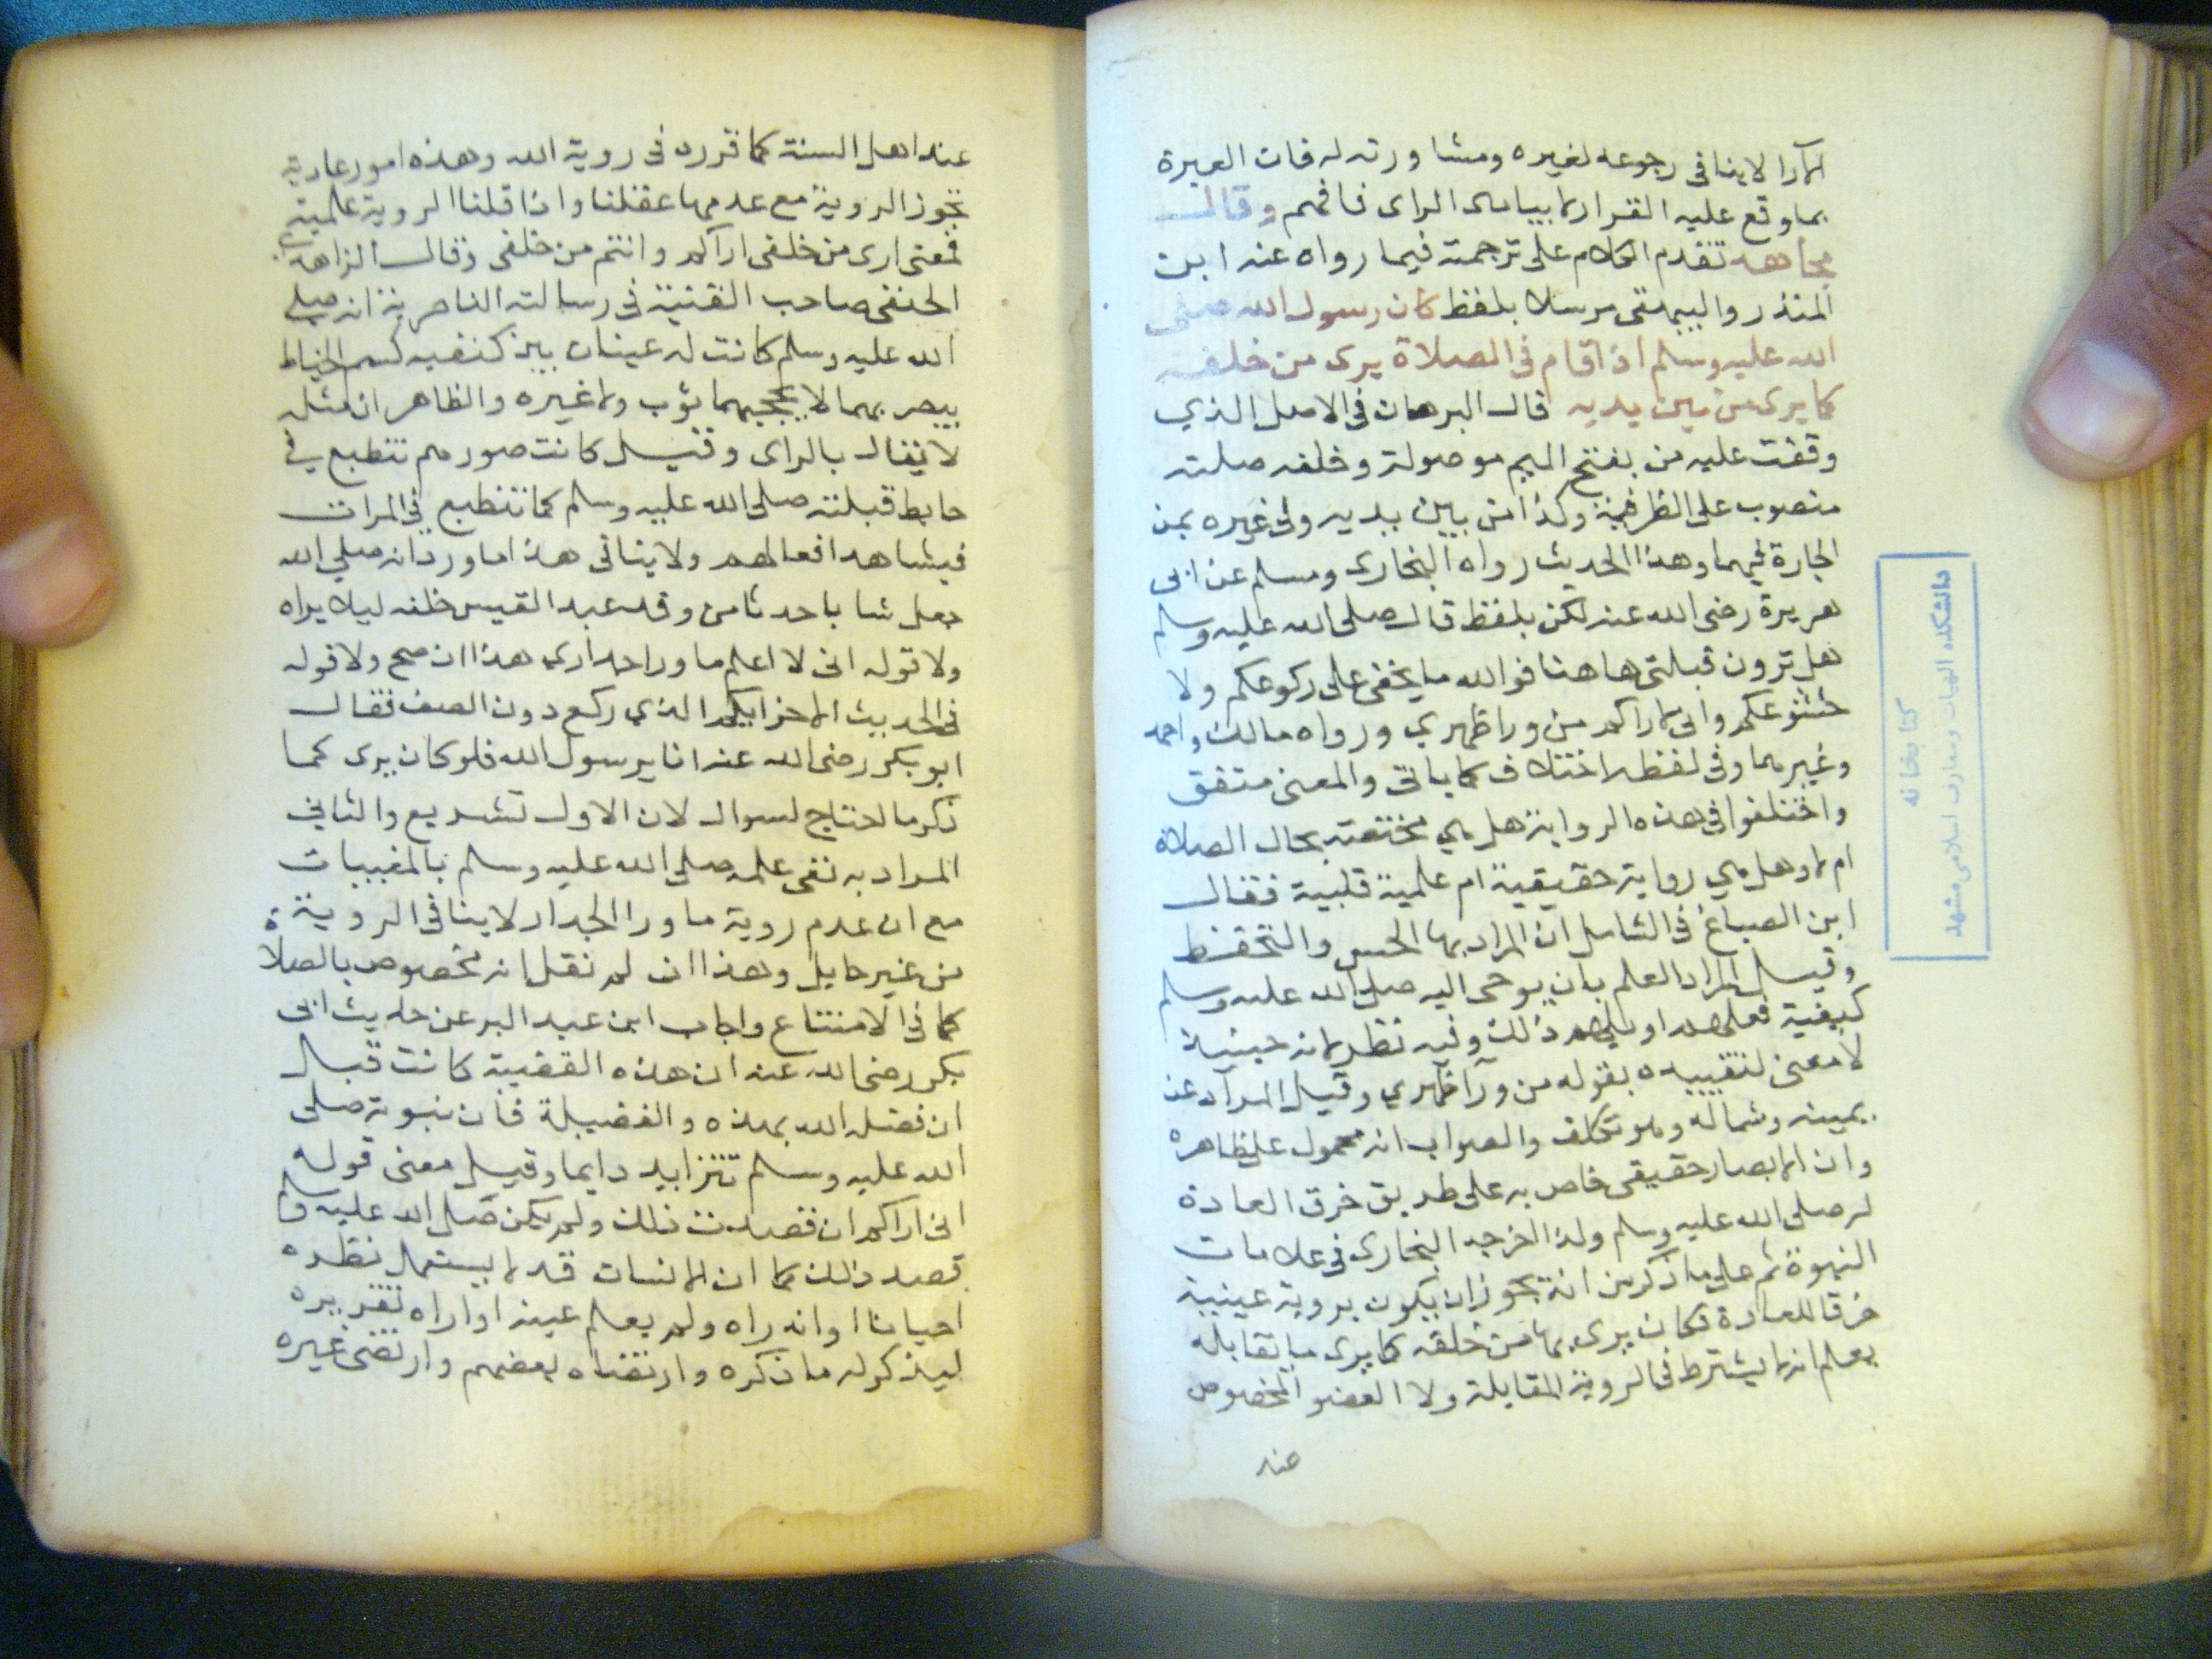 الآرا لاينافى رجوعه لغيره ومشاورته له فان العبرة
بما وقع عليه القرار لا ببيادى الراى فافهم وقال
مجاهد تقدم الكلام على ترجمته فيما رواه عنه ابن
المنذر والبيهقى مرسلا بلفظ كان رسول الله صلى
الله عليه وسلم اذا قام فى الصلاة يرى من خلفه
كما يرى من بين يديه قال البرهان فى الاصل الذي
وقفت عليه من بفتح الميم موصولة وخلفه صلته
منصوب على الظرفية وكذا من بين يديه وفى غيره بمن
الجارة فيهما وهذا الحديث رواه البخارى ومسلم عن ابى
هريرة رضى الله عنه لكن بلفظ قال صلى الله عليه وسلم
هل ترون قبلتى هاهنا فوالله ما يخفى على ركوعكم ولا
خشوعكم وانى لاراكم من ورا ظهري ورواه مالك واحمد
وغيرهما وفى لفظه اختلاف كما ياتى والمعنى متفق
واختلفوا فى هذه الرواية هل هي مختصة بحال الصلاة
ام لا وهل هي رواية حقيقية ام علمية قلبية فقال
ابن الصباغ فى الشامل ان المراد بها الحس والتحفظ
وقيل المراد العلم بان يوحى اليه صلى الله عليه وسلم
كيفية فعلهم او يلهم ذلك وفيه نظر لانه حينية
لا معنى لتقييده بقوله من ورآ ظهري وقيل المرآد عن
يمينه وشماله وهو تكلف والصواب انه محمول على ظاهره
وان الابصار حقيقى خاص به على طريق خرق العادة
له صلى الله عليه وسلم ولذا اخرجه البخارى فى علامات
النبوة ثم على ما ذكر من انه يجوز ان يكون بروية عينية
خرقا للعادة فكان يرى بها من خلقه كما يرى ما تقابله
يعلم انه لا يشترط فى الروية المقابلة ولا العضو المخصوص
عند
كتابخانه
دانشكده الهيات ومعارف اسلامى مشهد
عند اهل السنة كما قرره فى روية الله وهذه امور عادية
تجوز الروية مع عدمها عقلنا واذا قلنا الروية علمية
فمعنى ارى من خلفى اراكم وانتم من خلفى وقال الزاهدى
الحنفى صاحب القنية فى رسالته الناصرية انه صلى
الله عليه وسلم كانت له عينان بين كتفيه كسم الخياط
يبصر بهما لا يحجبهما ثوب ولا غيره والظاهر ان مثله
لا يقال بالراى وقيل كانت صورهم تنطبع في
حايط قبلته صلى الله عليه وسلم كما تنطبع فى المرات
فيشاهد افعالهم ولا ينافى هذا ما ورد انه صلي الله
جعل شابا حدثا من وفد عبد القيس خلفه ليلا يراه
ولا قوله انى لا اعلم ما ورا جداري هذا ان صح ولا قوله
فى الحديث الاخر ايكم الذي ركع دون الصف فقال
ابو بكر رضى الله عنه انا يرسول الله فلو كان يرى كما
ذكر ما احتاج لسوال لان الاول تشريع والثاني
المراد به نفى علمه صلى الله عليه وسلم بالمغيبات
مع ان عدم روية ما ورا الجدار لا ينافى الروية
من غير حايل وهذا ان لم نقل انه مخصوص بالصلاة
كما فى الامتناع واجاب ابن عبد البر عن حديث ابى
بكر رضى الله عنه ان هذه القضية كانت قبل
ان فضله الله بهذه والفضيلة فان نبوته صلى
الله عليه وسلم تتزايد دايما وقيل معنى قوله
انى اراكم ان قصدت ذلك ولم يكن صلى الله عليه وسلم
قصد ذلك كما ان الانسان قد لا يستعمل نظره
احيانا او انه راه ولم يعلم عينه او اراه تقريره
ليذكر له ما ذكره وارتضاه بعضهم وارتضى غيره